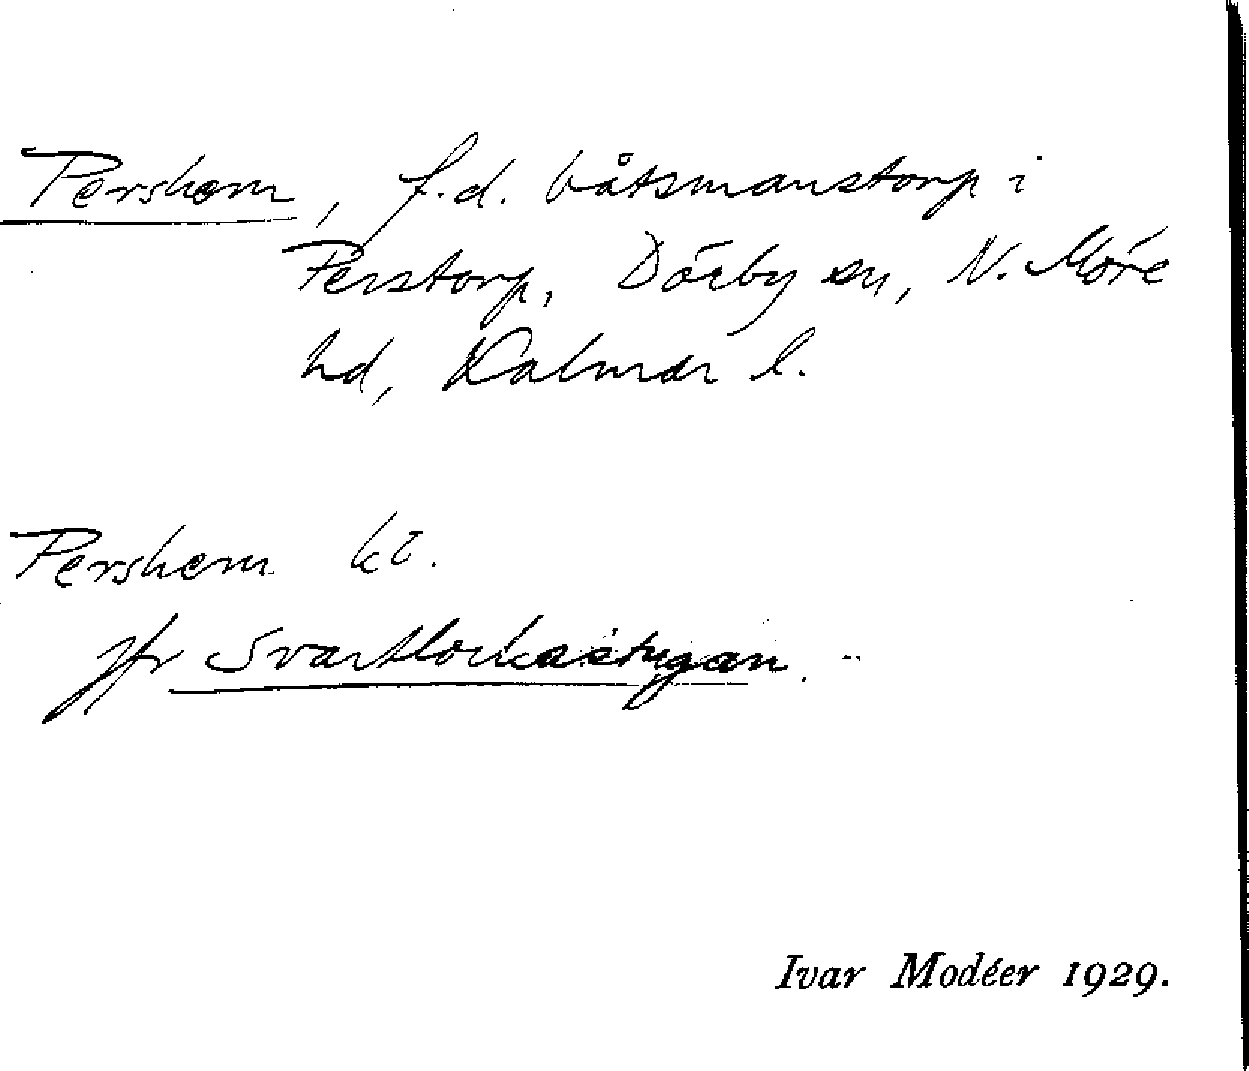 Pershem, f.d. båtsmanstorp i
Perstorp, Dörby sn, N. Möre
hd, Kalmar l.
Pershem kt.
jfr Svartlockastugan.
Ivar Modéer 1929.